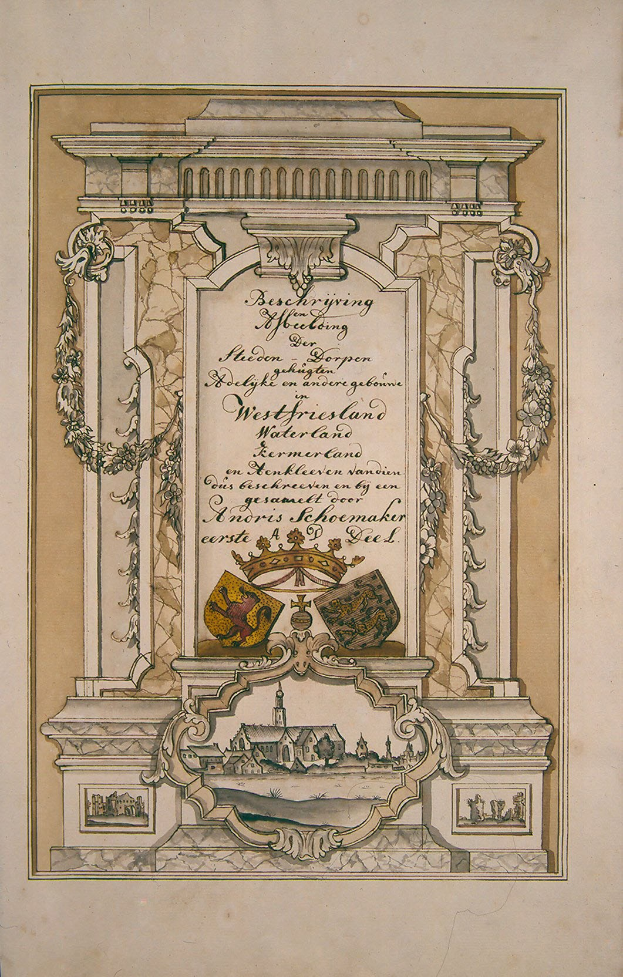 Beschrijving
en
Afbeelding
Der
Steeden - Dorpen
gehugten
Adelyke en andere gebouwe
in
Westfriesland
Waterland
&
Kermerland
en Aenkleeven vandien
dus beschreeven en by een
gesamelt door
Andris Schoemaker
eerste A D Deel.